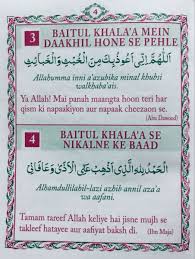 4
3
BAITUL KHALA'A MEIN
DAAKHIL HONE SE PEHLE
اَللّٰهُمَّ اِنِّىْ اَعُوْذُبِكَ مِنَ الْخُبُثِ وَالْخَبَائِثِ
Allahumma inni a'azubika minal khubsi
walkhaba'ais.
Ya Allah! Mai panah maangta hoon teri har
qism ki napaakiyon aur napaak cheezon se.
(Abu Dawood)
4
BAITUL KHALA'A SE
NIKALNE KE BAAD
اَلْحَمْدُ لِلّٰهِ الَّذِىْ اَذْهَبَ عَنِّى الْاَذٰى وَعَافَانِىْ
Alhamdullilabil-lazi azhib annil aza'w a
aafani.
Tamam tareef Allah keliye hai jisne mujh se
takleef hatayee aur aafiyat baksh di.
(Ibn Maja)